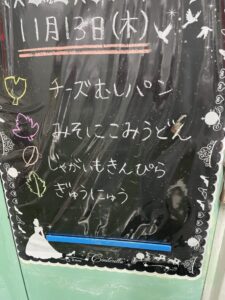 11月13日(木)
チーズむしパン
みそにこみうどん
じゃがいもきんぴら
ぎゅうにゅう
Cinderella